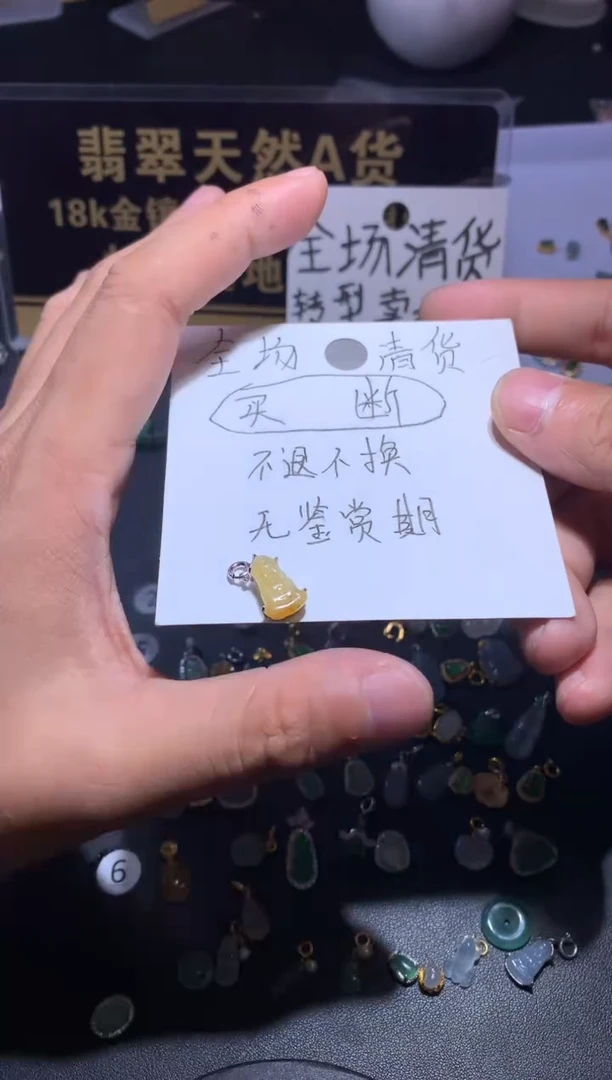 翡翠天然A货
18k金镶
地
全场清货
转型卖
全场 清货
买 断
不退不换
无鉴赏期
6